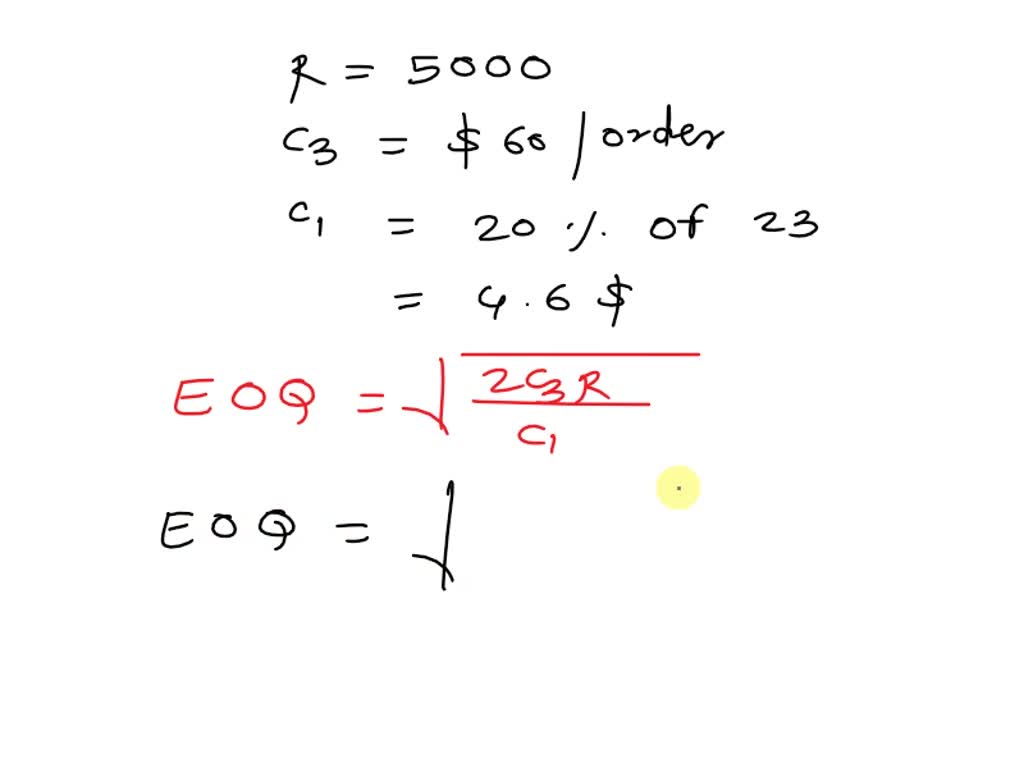 R = 5000
C3 = $ 60 / order
C1 = 20 % of 23
= 4.6 $
EOQ = √ 2C3R / C1
EOQ = √